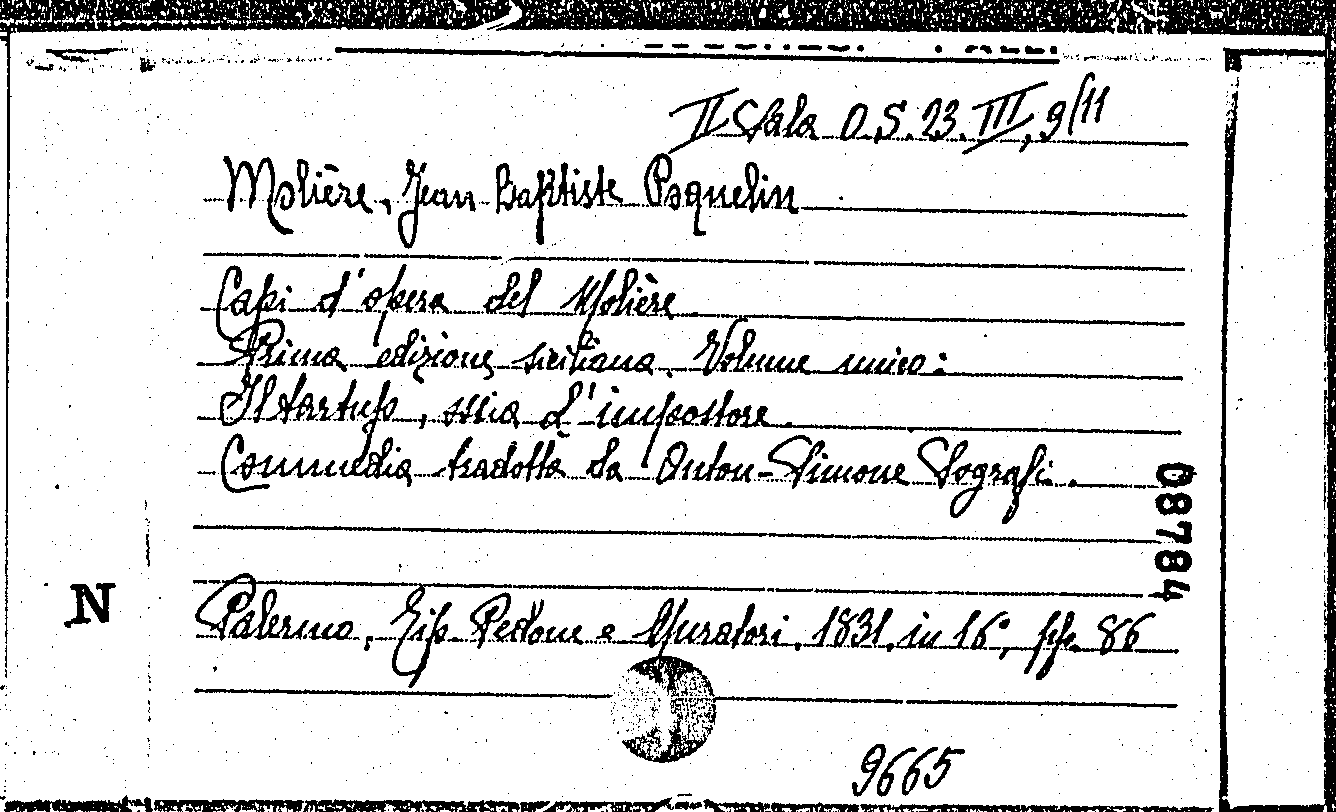 II Sala O.S. 23. III, 9/11
Molière, Jean Baptiste Poquelin
Capi d'opera del Molière
Prima edizione siciliana. Volume unico:
Il tartufo, ossia l'impostore.
Commedia tradotta da Anton-Simone Sografi.
08784
N
Palermo, Tip. Pedone e Muratori, 1831, in 16°, pp. 86
9665